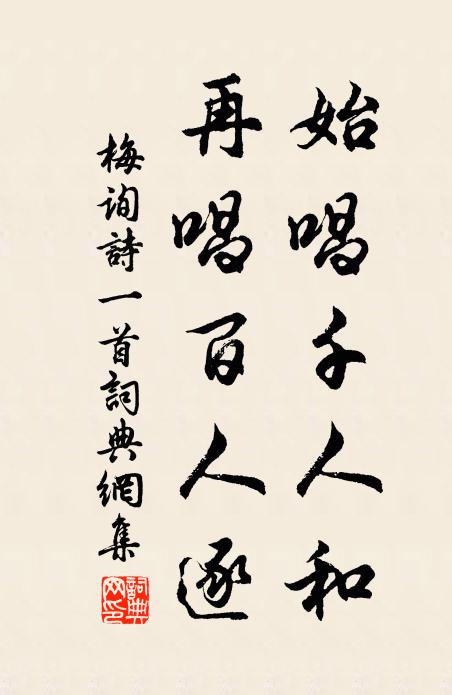 始唱千人和
再唱百人逐
梅询詩一首詞典網集
詞典网印